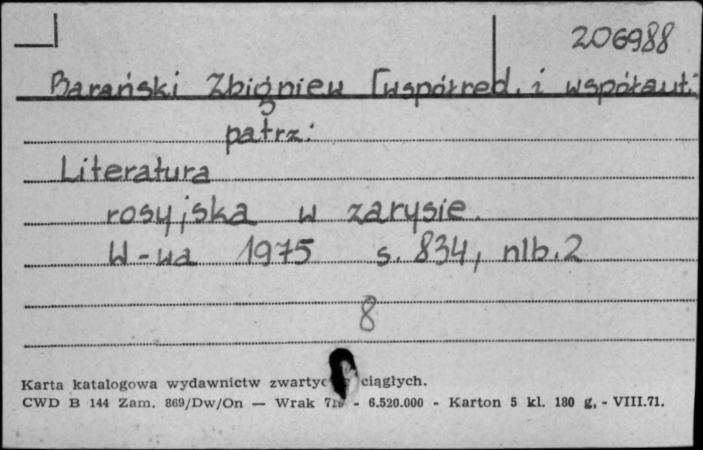 206988
Barański Zbigniew [współred. i współaut.
patrz:
Literatura
rosyjska w zarysie.
W-wa 1975 s. 834, nlb. 2
8
Karta katalogowa wydawnictw ciągłych.
CWD B 144 Zam. 869/Dw/On — Wrak - 6.520.000 - Karton 5 kl. 180 g, - VIII.71.